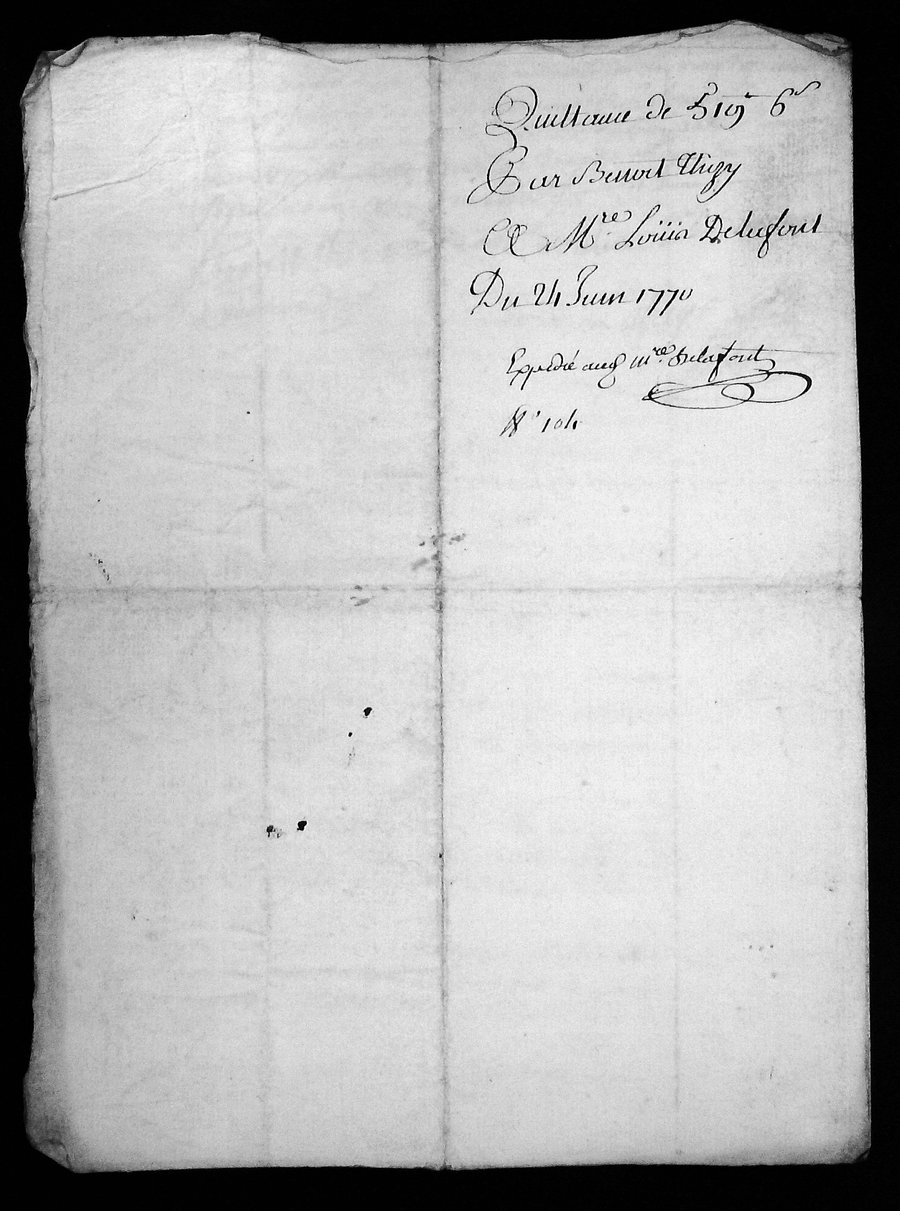 Quittance de 519# 6s
Par Benoit Thizy
A Mre. Loüis Delafont
Du 24 Juin 1770
Expedié aud mre. Delafont
No 104